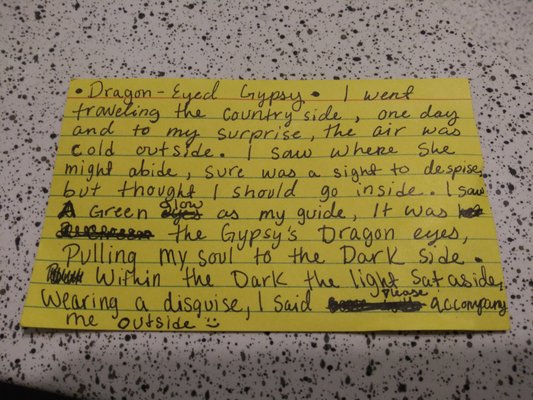 • Dragon-Eyed Gypsy • I went
traveling the country side, one day
and to my surprise, the air was
cold outside. I saw where she
might abide, sure was a sight to despise,
but thought I should go inside. I saw
A Green glow as my guide, It was
the Gypsy's Dragon eyes,
Pulling my soul to the Dark side.
Within the Dark the light sat aside,
Wearing a disguise, I said please accompany
me outside ☺